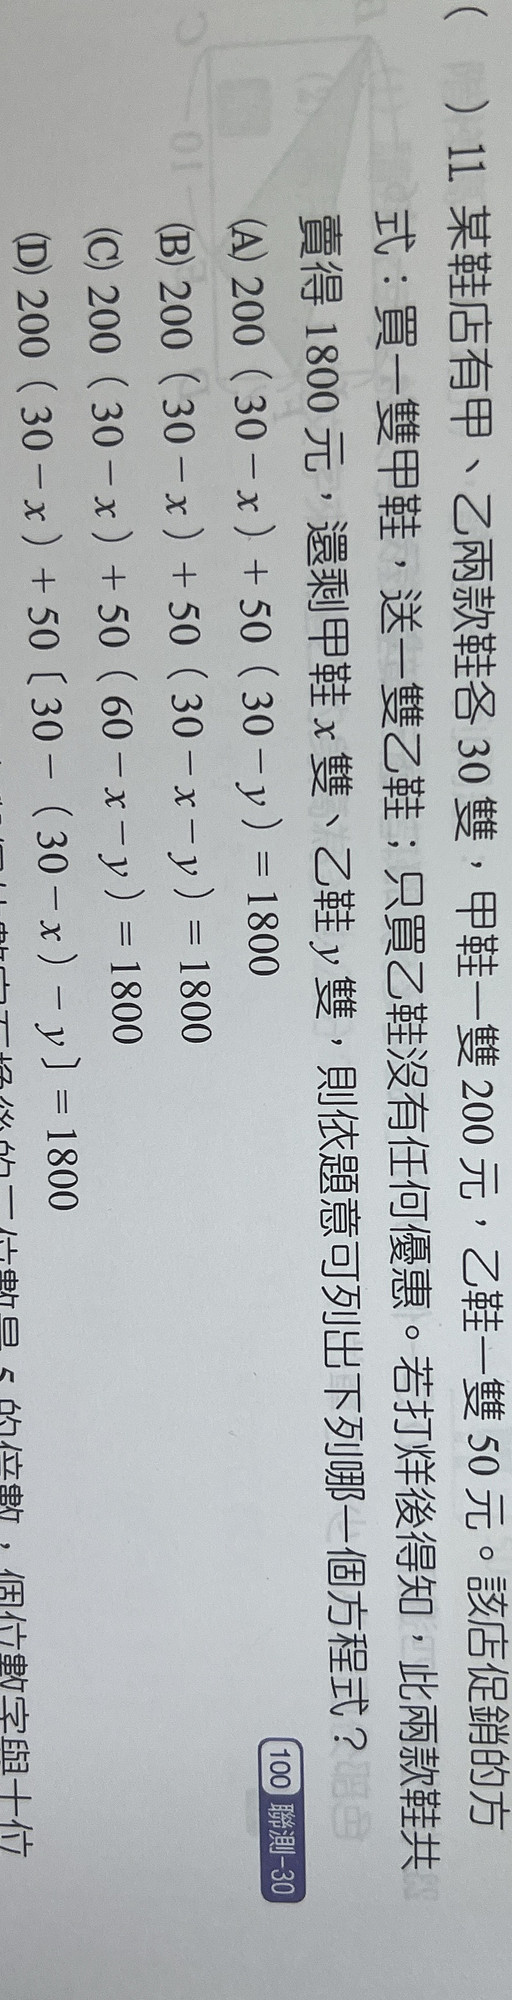 (　) 11. 某鞋店有甲、乙兩款鞋各 30 雙，甲鞋一雙 200 元，乙鞋一雙 50 元。該店促銷的方
式：買一雙甲鞋，送一雙乙鞋；只買乙鞋沒有任何優惠。若打烊後得知，此兩款鞋共
賣得 1800 元，還剩甲鞋 x 雙、乙鞋 y 雙，則依題意可列出下列哪一個方程式？
100 聯測-30
(A) 200 ( 30 − x ) + 50 ( 30 − y ) = 1800
(B) 200 ( 30 − x ) + 50 ( 30 − x − y ) = 1800
(C) 200 ( 30 − x ) + 50 ( 60 − x − y ) = 1800
(D) 200 ( 30 − x ) + 50 [ 30 − ( 30 − x ) − y ] = 1800
的二位數是 5 的倍數，個位數字與十位